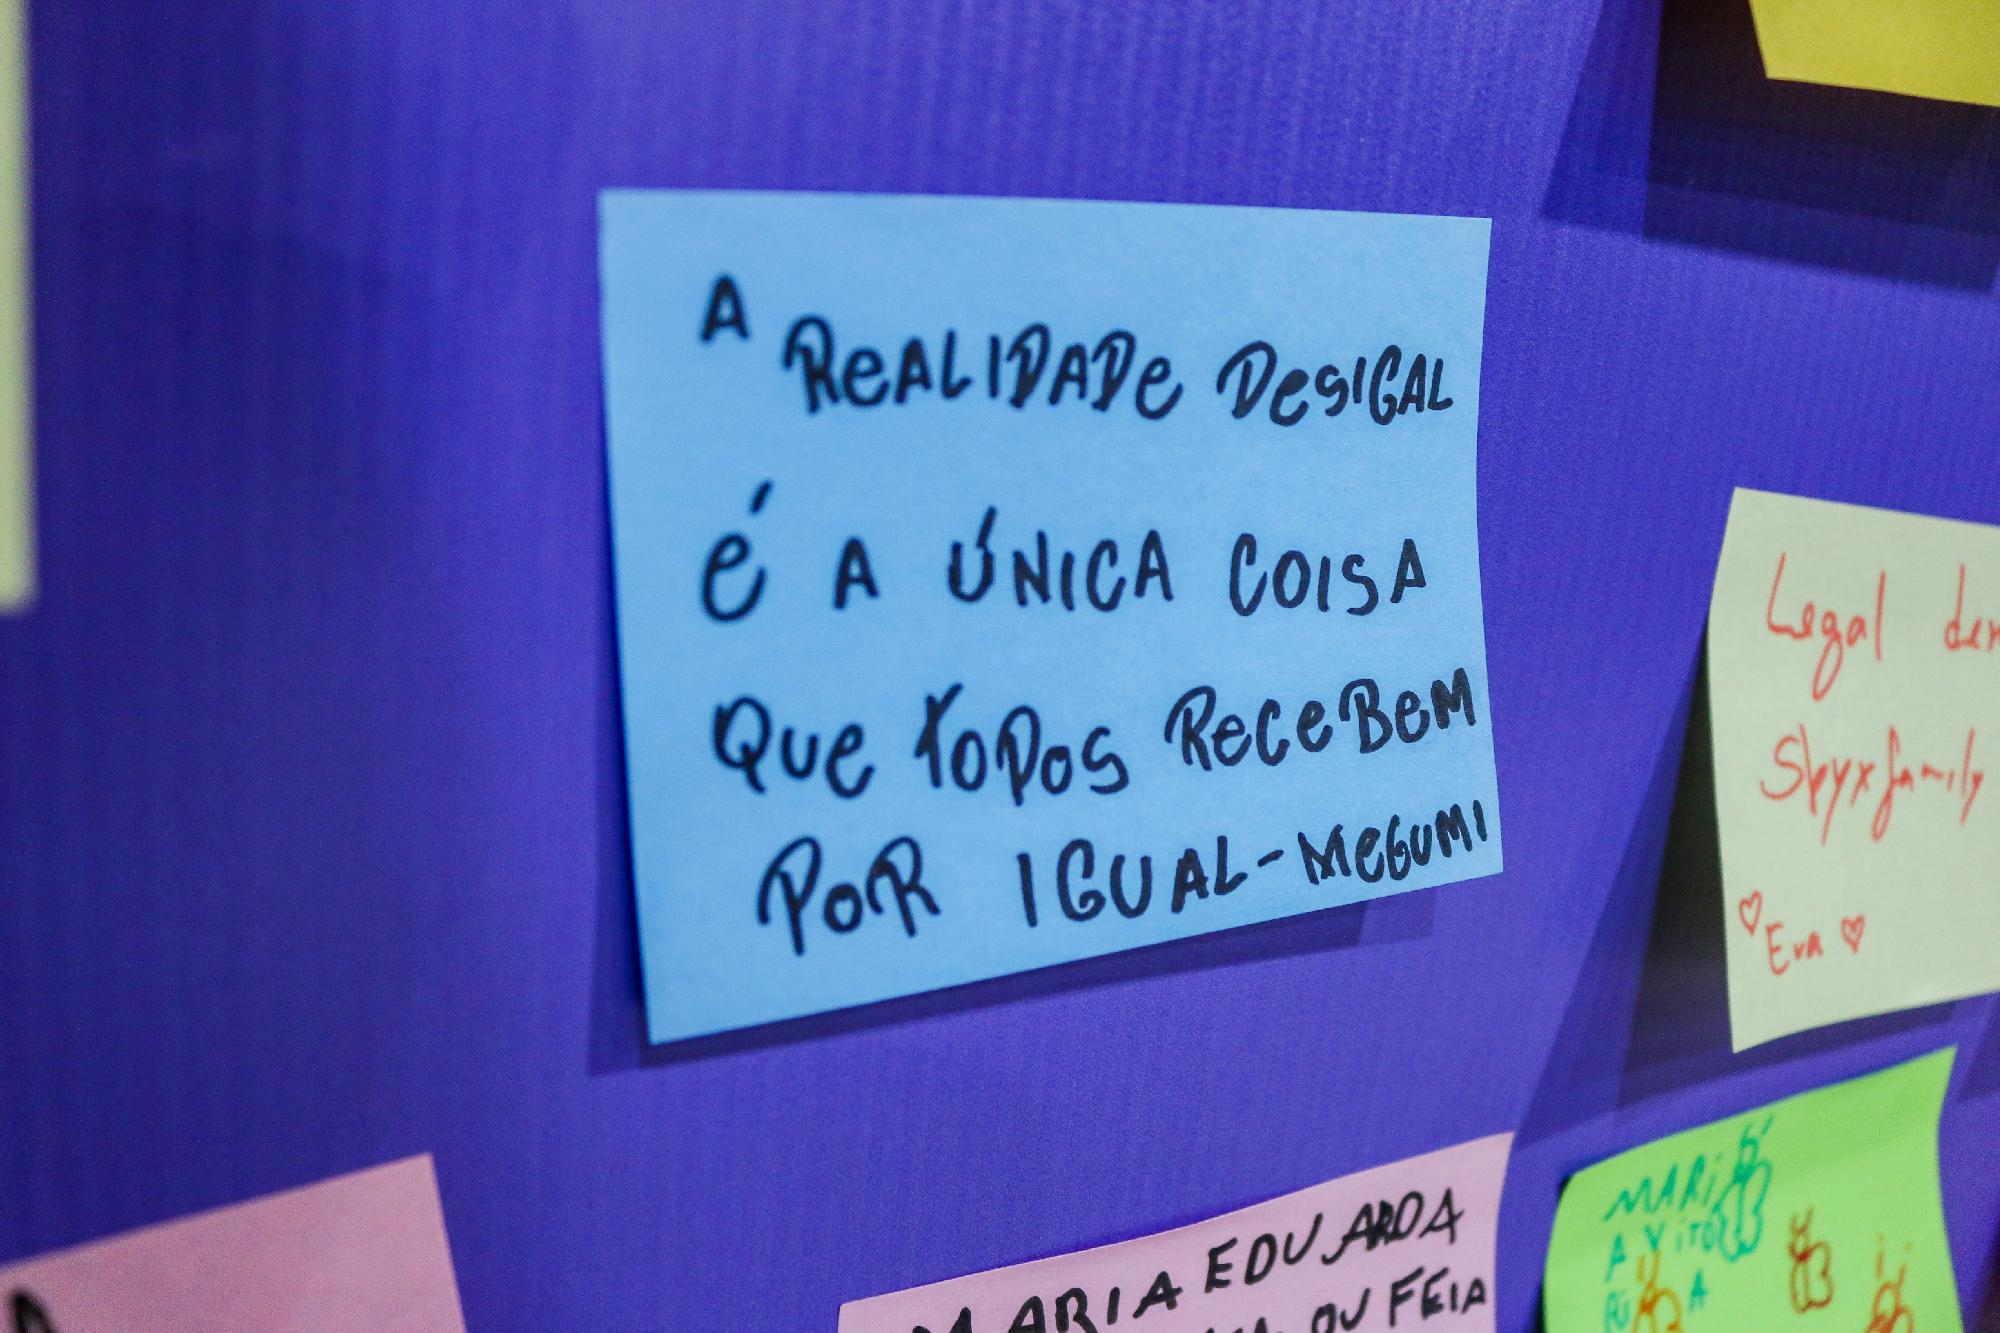 A REALIDADE DESIGAL
É A ÚNICA COISA
QUE TODOS RECEBEM
POR IGUAL-MEGUMI
Legal
Spyxfamily
Eva
MARIA EDUARDA
OU FEIA
MARI
A VITO
RI A